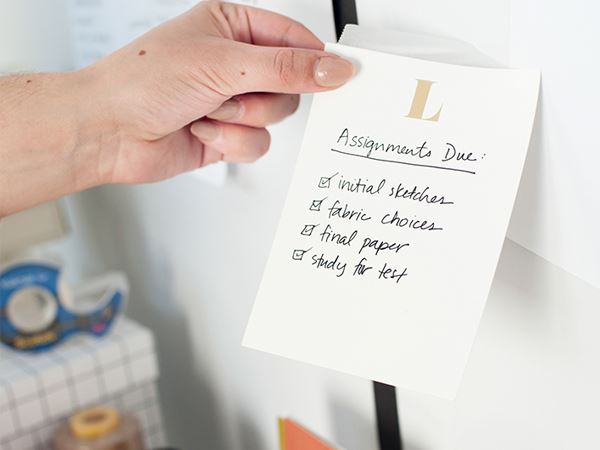 L
Assignments Due:
☑ initial sketches
☑ fabric choices
☑ final paper
☑ study for test